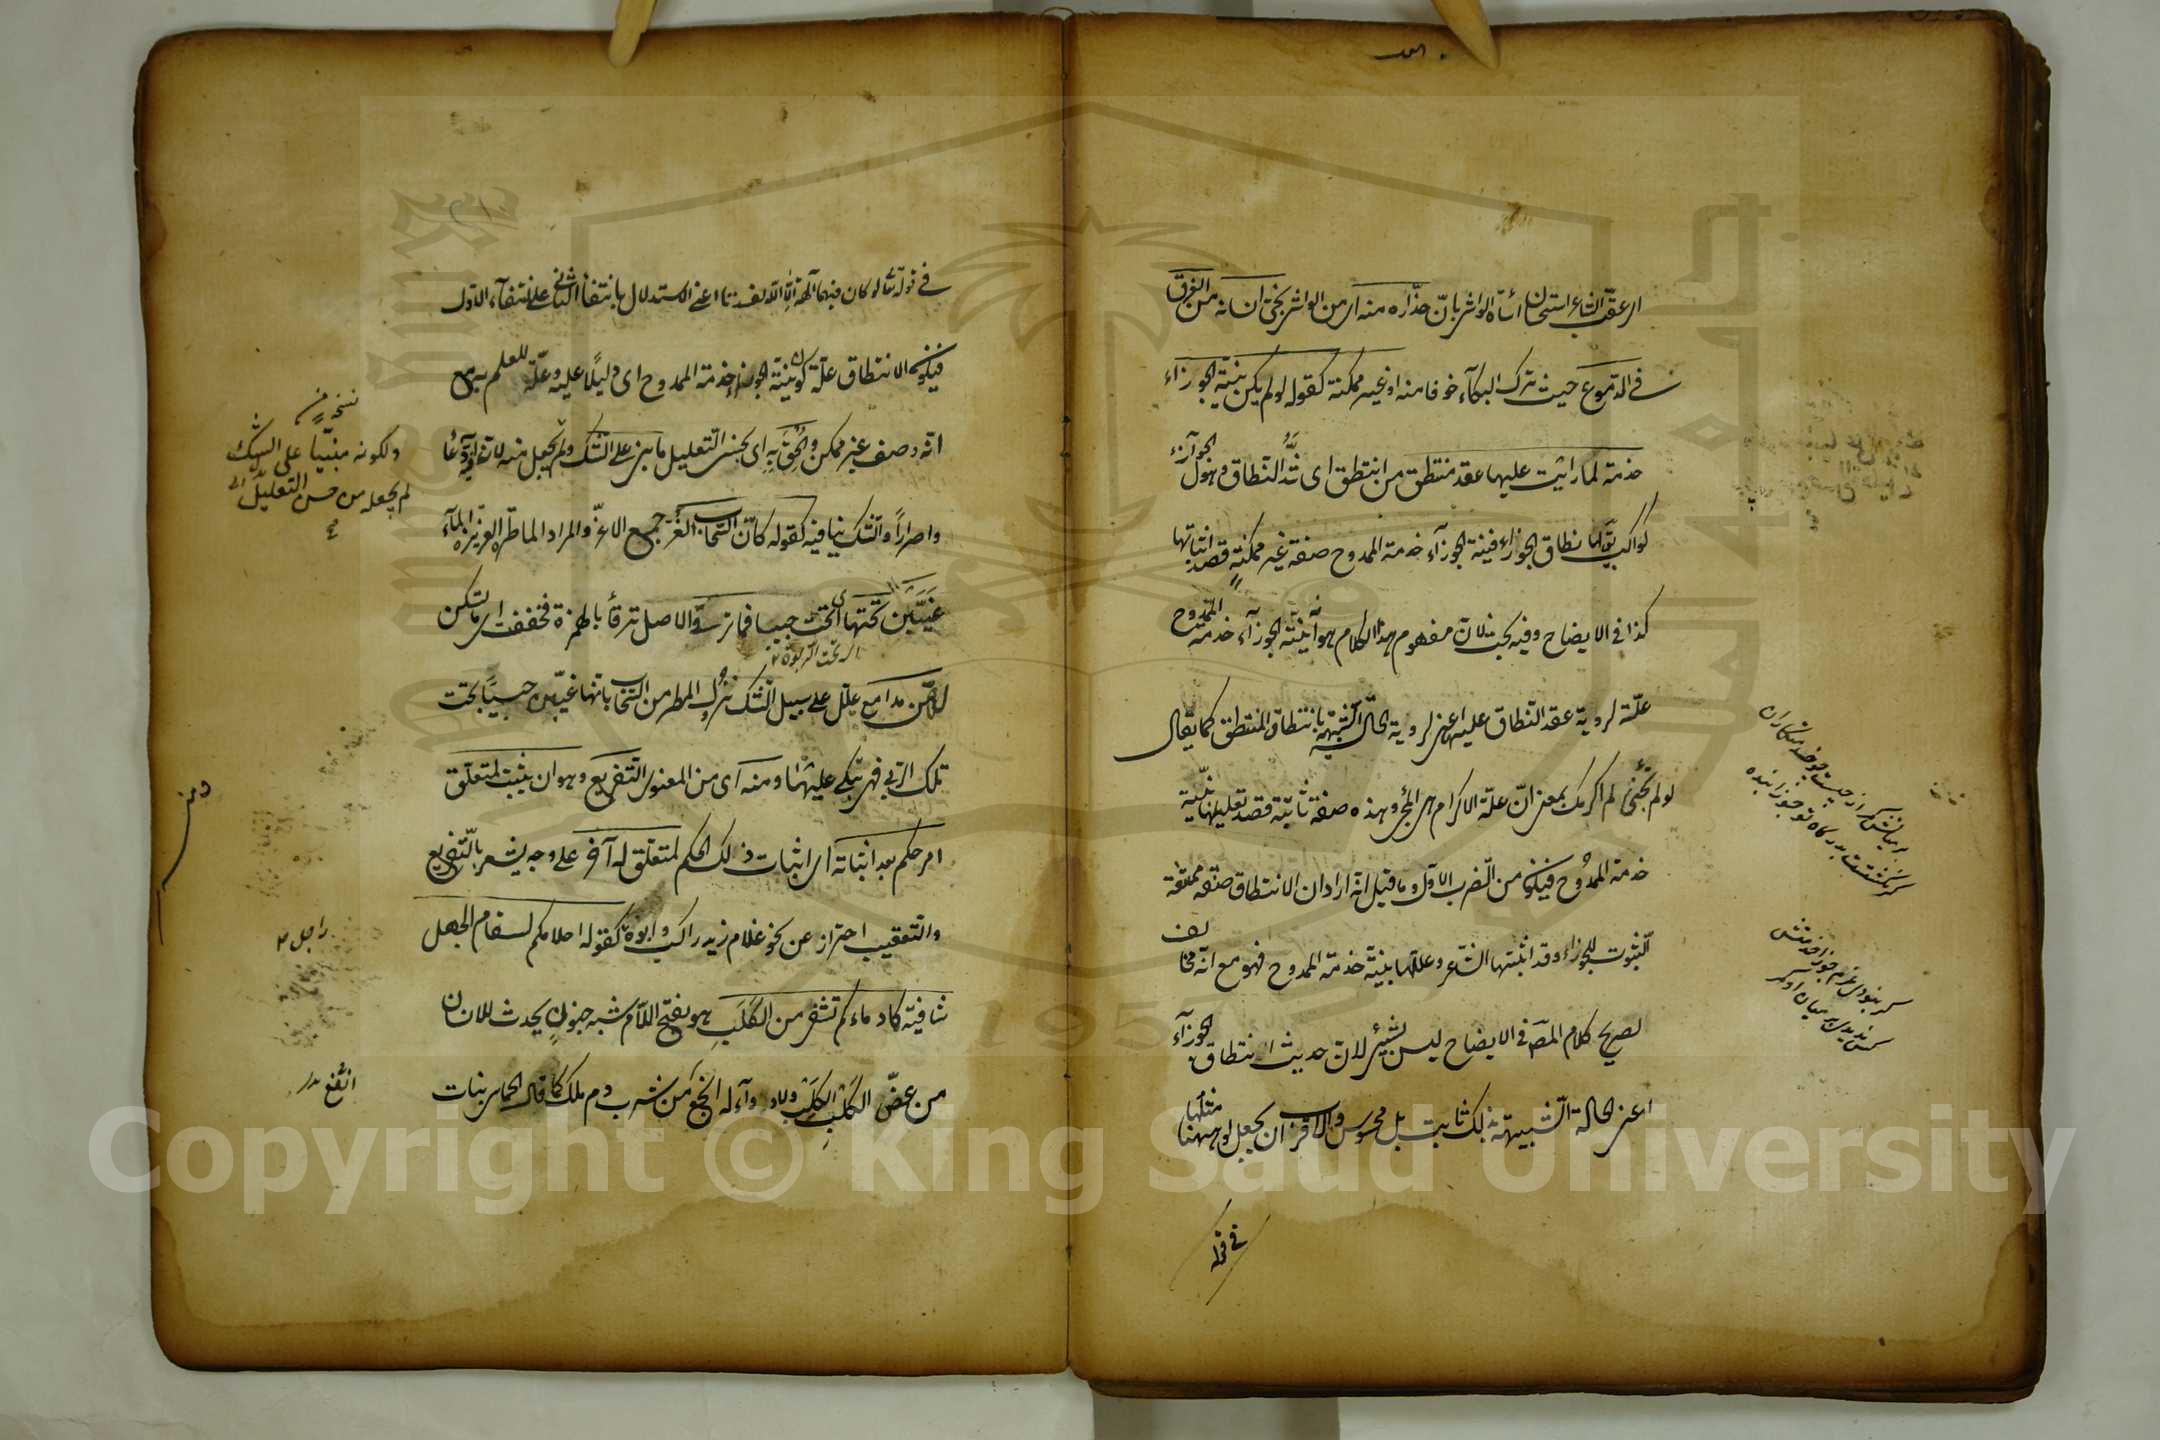 اى عقّب الشاعر استحسان اساءة الواشى بانّ حذاره منه اى من الواشى نجّى انسانه من الغرق
فى الدّموع حيث ترك البكاء خوفا منه او غير ممكنة كقوله لو لم يكن نيّة الجوزاء
خدمته لما رايت عليها عقد منتطق من انتطق اى شدّ النطاق وحول الجوزاء
كواكب يقال لها نطاق الجوزاء فنيّة الجوزاء خدمة الممدوح صفة غير ممكنة قصد اثباتها
كذا فى الايضاح وفيه بحث لانّ مفهوم هذا الكلام هو انّ نيّة الجوزاء خدمة الممدوح
علّة لروية عقد النطاق عليها اعنى لروية الحالة الشبيهة بانتطاق المنتطق كما يقال
لو لم تجئنى لم اكرمك بمعنى انّ علّة الاكرام هى المجئ وهذه صفة ثابتة قصد تعليلها بنيّة
خدمة الممدوح فيكون من الضرب الاوّل وما قيل انّه اراد ان الانتطاق صفة ممتنعة
الثبوت للجوزاء وقد اثبتها الشاعر وعللها بنيّة خدمة الممدوح فهو مع انّه مخالف
لصريح كلام المص فى الايضاح ليس بشئ لان حديث انتطاق الجوزاء
اعنى الحالة الشبيهة بذلك ثابت بل محسوس والاقرب ان يجعل لو ههنا مثلها
فى قوله
فى قوله تعالى لو كان فيهما آلهة الا الله لفسدتا اعنى الاستدلال بانتفاء الثانى على انتفاء الاول
فيكون الانتطاق علّة كون نيّة الجوزاء خدمة الممدوح اى دليلًا عليه وعلّة للعلم به مع
انّه وصف غير ممكن وأُلحِق به اى بحسن التعليل ما بنى على الشك ولم يجعل منه لانّ فيه ادّعاء
واصراراً والشك ينافيه كقوله كانّ السحاب الغرّ جمع الاغرّ والمراد الماطرة الغزيرة الماء
غيّبن تحتها اى تحت حبيبا فما ترقا والاصل ترقأ بالهمزة فخففت اى ما تسكن
لهنّ مدامع علّل على سبيل الشك نزول المطر من السحاب بانّها غيّبن حبيباً تحت
تلك الربى فهى تبكى عليها ومنه اى من المعنوى التفريع وهو ان يثبت لمتعلّق
امر حكم بعد اثباته اى اثبات ذلك الحكم لمتعلّق له آخر على وجه يشعر بالتفريع
والتعقيب احتراز عن نحو غلام زيد راكب وابوه كقوله احلامكم لسقام الجهل
شافية كما دماءكم تشفى من الكَلَب هو بفتح اللّام شبه جنون يحدث للانسان
من عضّ الكلب الكَلِب ولا دواء له انجع من شرب دم ملك كما قال الحماسى بنات
نسخه
ولكونه مبنيّا على الشك
لم يجعله من حسن التعليل
راجل
انفع
Copyright © King Saud University
1957